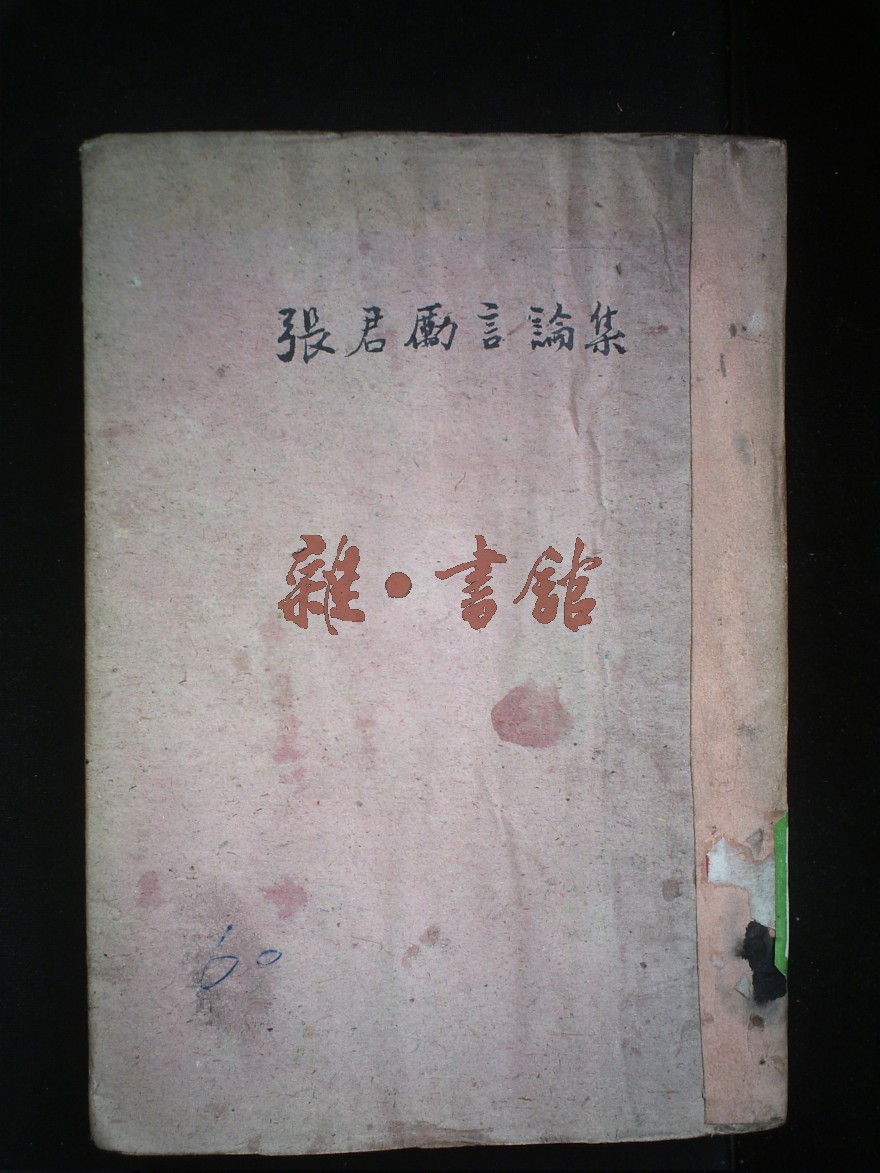 張君勵言論集
雜·書館
60